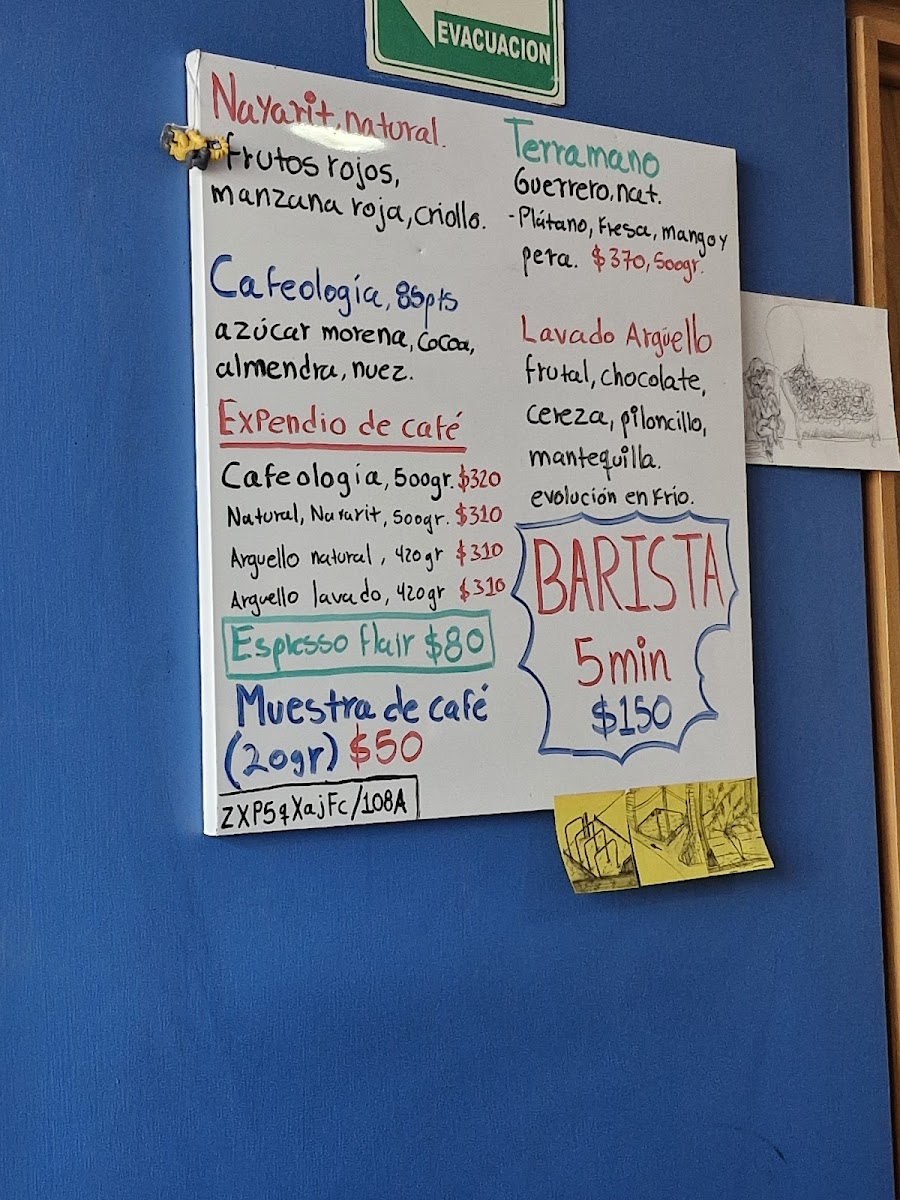 EVACUACION
Nayarit, natural.
frutos rojos,
manzana roja, criollo.
Cafeología, 85pts
azúcar morena, cocoa,
almendra, nuez.
Expendio de café
Cafeología, 500gr. $320
Natural, Nayarit, 500gr. $310
Arguello natural, 420gr $310
Arguello lavado, 420gr $310
Espresso flair $80
Muestra de café
(20gr) $50
ZXP5qXajFc/108A
Terramano
Guerrero, nat.
-Plátano, Fresa, mango y
pera. $370, 500gr.
Lavado Argüello
frutal, chocolate,
cereza, piloncillo,
mantequilla.
evolución en frío.
BARISTA
5min
$150